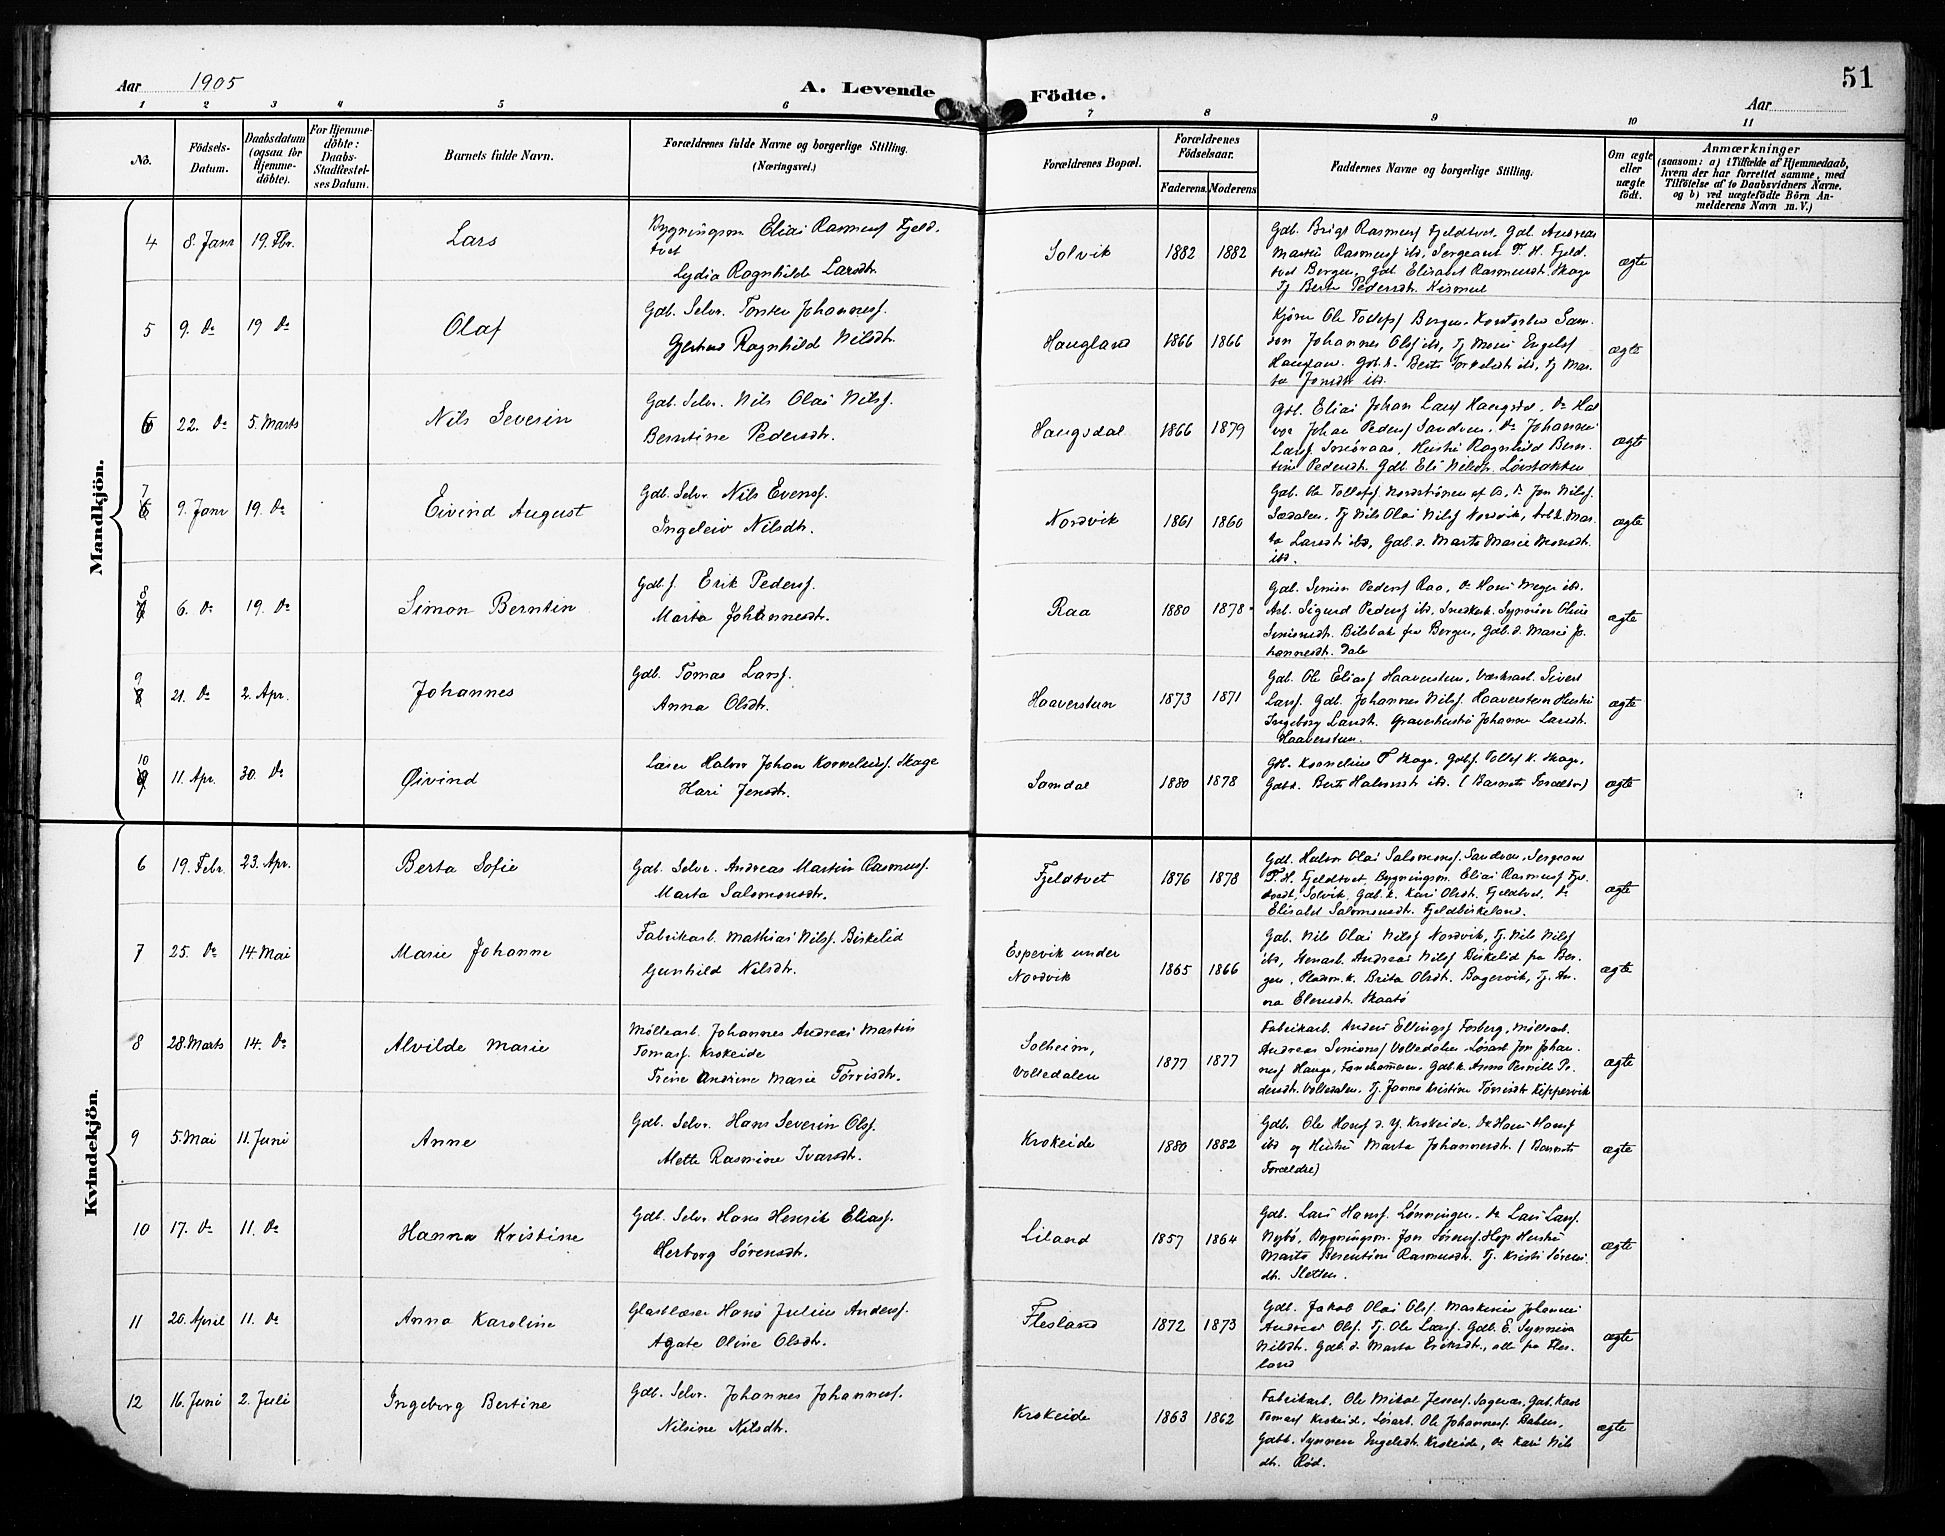 Aar 1905
A. Levende Födte.
51
Aar
1 2 3 4 5 6 7 8 9 10 11
No.
Födsels-Datum.
Daabsdatum (ogsaa for Hjemme-döbte).
For Hjemme-döbte: Daabs-Stadfæstel-ses Datum.
Barnets fulde Navn.
Forældrenes fulde Navne og borgerlige Stilling. (Næringsvei.)
Forældrenes Bopæl.
Forældrenes Födselsaar.
Faderens. Moderens
Faddernes Navne og borgerlige Stilling.
Om ægte eller uægte födt.
Anmærkninger
(saasom: a) i Tilfælde af Hjemmedaab,
hvem der har forrettet samme, med
Tilföielse af to Daabsvidners Navne.
og b) ved uægtefödte Börn An-
melderens Navn m. V.)
Mandkjön.
4 8. Janr 19. Fbr. Lars
Bygningsm Elias Rasmusf Fjeld-
tvet
Lydia Ragnhilde Larsdtr.
Solvik 1882 1882
Gdb. Rasmusf Fjeldtvet, Gdb. Andreas
Martin Rasmusf ibd, Sergeant T. H. Fjeld-
tvet Bergen, Gdb. Elisabet Rasmusdt. Skage
Tj Berta Pedersdtr.
ægte
5 9. Do 19 Do Olaf
Gdb. Selvr. Torstein Johannesf.
Gjertrud Ragnhild Nilsdtr.
Haugland 1866 1866
Ole Bergen.
Johannes Olsf ibd, Tj
Berta ibd, Tj Mar-
ta ibd.
ægte
6 22. Do 5. Marts Nils Severin
Gdb. Selvr. Nils Olai Nilsf.
Berntine Pedersdtr.
Haugsdal 1866 1879
Gdb. Eliai Johan Larsf Haugsdal, Do Hal-
vor Johan Pedersf Sandven, Do Johannes
Larsf. Hustru Ragnhild Bern-
tine Pedersdt. Gdb. Eli Nilsdtr.
ægte
7 9. Janr 19. Do Eivind August
Gdb. Selvr. Nils Evensf.
Ingeleiv Nilsdtr.
Nordvik 1861 1860
Gdb. Ole Tollefsf. Jon Nilsf.
Tj Nils Olai Nilsf Nordvik, Mar-
ta Larsdt ibd, Gdb. d. Marta Marie Monsdt.
ibd.
ægte
8 6. Do 19. Do Simon Berntin
Gdb. f. Erik Pedersf.
Marta Johannesdtr.
Raa 1880 1878
Gdb. Simon Pedersf Raa, Do Hans Meyer ibd.
Arb. Sigurd Pedersf ibd, Synnöve Oline
Simonsdt. fra Bergen, Gdb. d. Marie Jo-
hannesdt. Dale
ægte
9 21. Do 2. Apr. Johannes
Gdb. Tomas Larsf.
Anna Olsdtr.
Haaverstun 1873 1871
Gdb. Ole Eliasf Haaverstun, Værksarb. Sivert
Larsf. Gdb. Johannes Nilsf. Haaverstun Hustru
Ingeborg Larsdt. Johanne Larsdt.
Haaverstun.
ægte
10 11. Apr. 30. Do Øivind
Lærer Halvor Johan Korneliusf. Skage
Kari Jensdtr.
Samdal 1880 1878
Gdb. Kornelius T Skage, Gdbf. Tollef K. Skage,
Gdbk. Berte Halvorsdt ibd. (Barnets Forældre)
ægte
Kvindekjön.
6 19. Febr. 23. Apr. Berta Sofie
Gdb. Selvr. Andreas Martin Rasmusf.
Marta Salomonsdtr.
Fjeldtvet 1876 1878
Gdb. Halvor Olai Salomonsf. Sandven, Sergeant
T. H. Fjeldtvet, Bygningsm. Elias Rasmusf Fjel-
tvedt, Solvik, Gdb. k. Kari Olsdt. Fjeldtvet, Do
Elisabet Salomonsdt. Fjeldbirkeland.
ægte
7 25. Do 14. Mai Marie Johanne
Fabrikarb. Mathias Nilsf. Birkelid
Gunhild Nilsdtr.
Espevik under
Nordvik 1865 1866
Gdb. Nils Olai Nilsf Nordvik, Tj. Nils Nilsf
ibd, Stenarb. Andreas Nilsf Birkelid fra Ber-
gen, Pladsm. k. Brita Olsdt. Bogervik, Tj. An-
na Skaatö
ægte
8 28. Marts 14. Do Alvilde Marie
Möllearb. Johannes Andreas Martin
Tomasf. Krokeide
Trine Andrine Marie Törrisdtr.
Solheim,
Volledalen 1877 1877
Fabrikarb. Anders Ellingsf Fosberg, Möllearb.
Andreas Simonsf Volledalen, Lösarb Jon Johan-
nesf Hauge, Gdb. k. Anna Pernille Pe-
dersdt. Volledalen. Tj. Janna Kristine Törrisdt
ægte
9 5. Mai 11. Juni Anne
Gdb. Selvr. Hans Severin Olsf.
Alette Rasmine Ivarsdtr.
Krokeide 1880 1882
Gdb. Ole Hansf d. y. Krokeide. Do Hans Hansf
ibd og Hustru Marta Johannesdt. (Barnets
Forældre)
ægte
10 17. Do 11. Do Hanna Kristine
Gdb. Selvr Hans Henrik Eliasf.
Herborg Sörensdtr.
Liland 1857 1864
Gdb. Lars Hansf. Lönningen. Do Lars Larsf.
Nybö, Bygningsm. Jon Sörensf. Hop Hustru
Marta Berentine Rasmusdt. Tj. Kristi Sörens-
dt. Sletten.
ægte
11 20. April 11. Do Anna Karoline
Glasblæser Hans Julius Andersf.
Agate Oline Olsdtr.
Flesland 1872 1873
Gdb. Jakob Olai Olsf. Maskinist Johannes
Andreas Olsf. Tj. Ole Larsf. Gdb. E. Synneva
Nilsdt. Gdb. d. Marta Eriksdt., alle fra Fles-
land
ægte
12 16. Juni 2. Juli Ingeborg Bertine
Gdb. Selvr. Johannes Johannesf.
Nilsine Nilsdtr.
Krokeide 1863 1862
Fabrikarb. Ole Mikal Jensf. Gdb. Karl
Tomasf Krokeid, Lösarb. Ole Johannesf.
Gdbk. Synneve Engelsdt. Krokeide, Do Kari Nils-
dt. Röd.
ægte